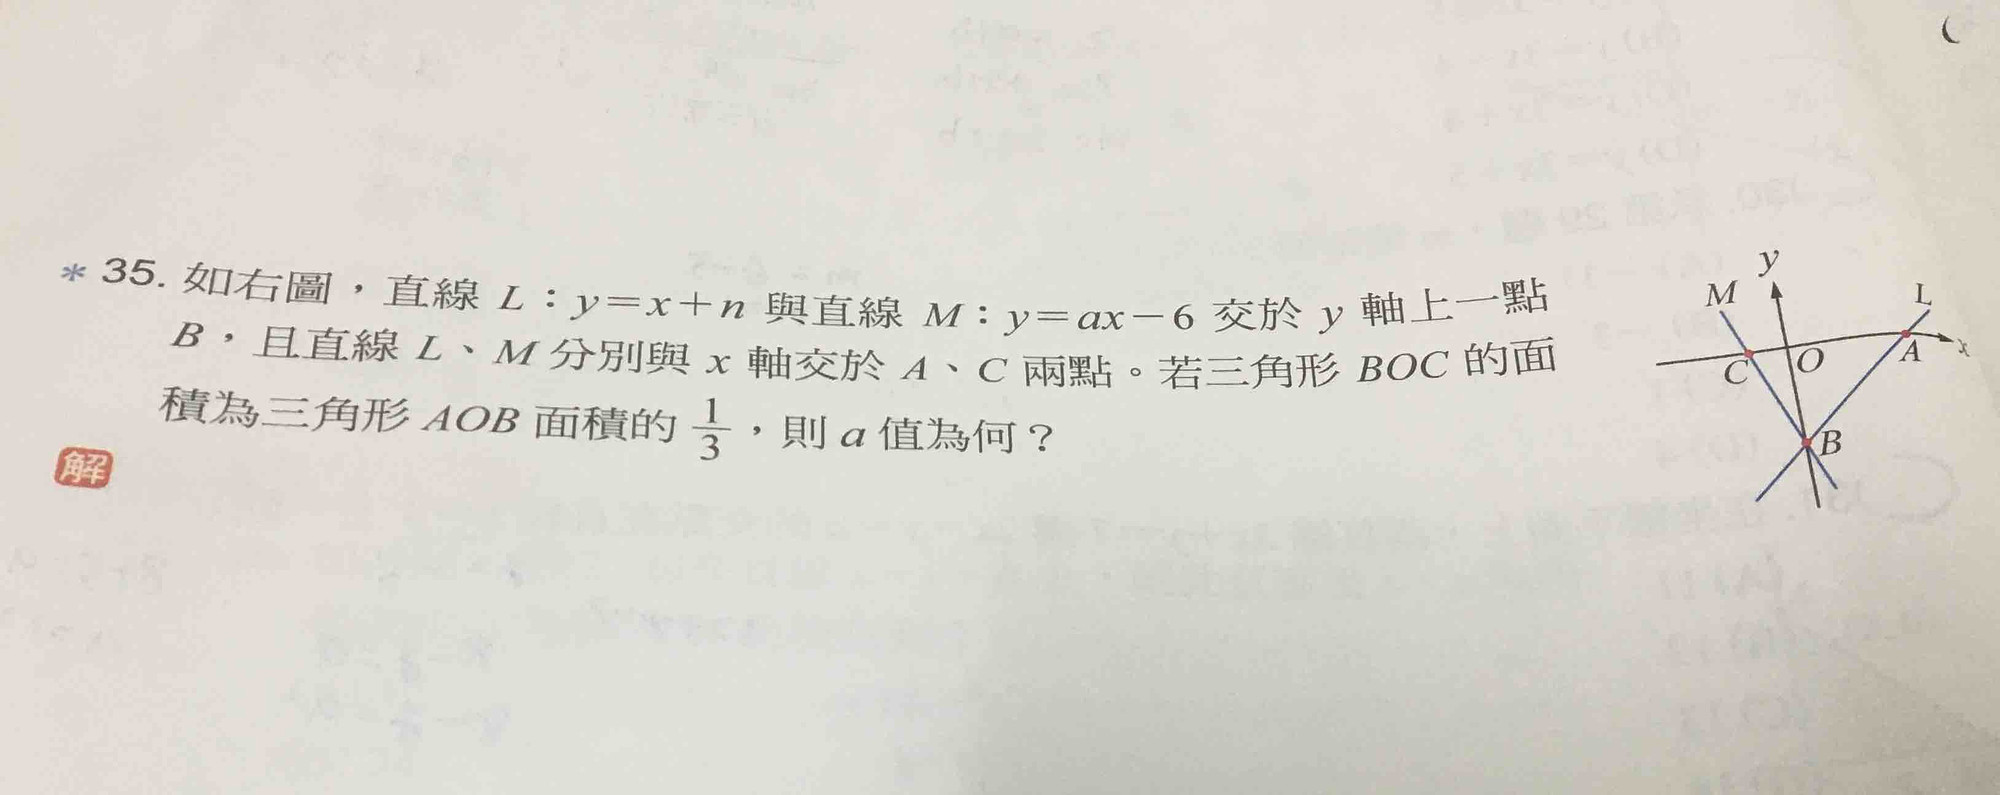 * 35. 如右圖，直線 L：y=x+n 與直線 M：y=ax-6 交於 y 軸上一點
B，且直線 L、M 分別與 x 軸交於 A、C 兩點。若三角形 BOC 的面
積為三角形 AOB 面積的 1/3，則 a 值為何？
解
y
M
L
C
O
A
x
B